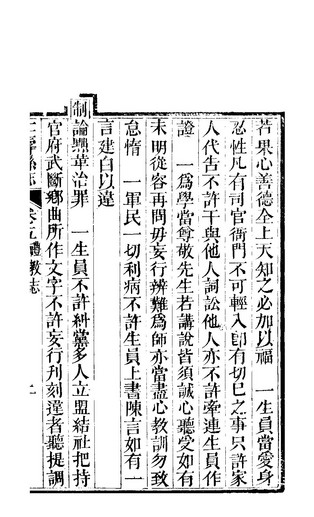 若果心善德全上天知之必加以福　一生員當愛身
忍性凡有司官衙門不可輕入卽有切巳之事只許家
人代吿不許干與他人詞訟他人亦不許牽連生員作
證　一爲學當尊敬先生若講說皆須誠心聽受如有
未明從容再問毋妄行辨難爲師亦當盡心教訓勿致
怠惰　一軍民一切利病不許生員上書陳言如有一
言建白以違
制論黜革治罪　一生員不許糾黨多人立盟結社把持
官府武斷鄉曲所作文字不許妄行刊刻違者聽提調
卷五　禮教志　二